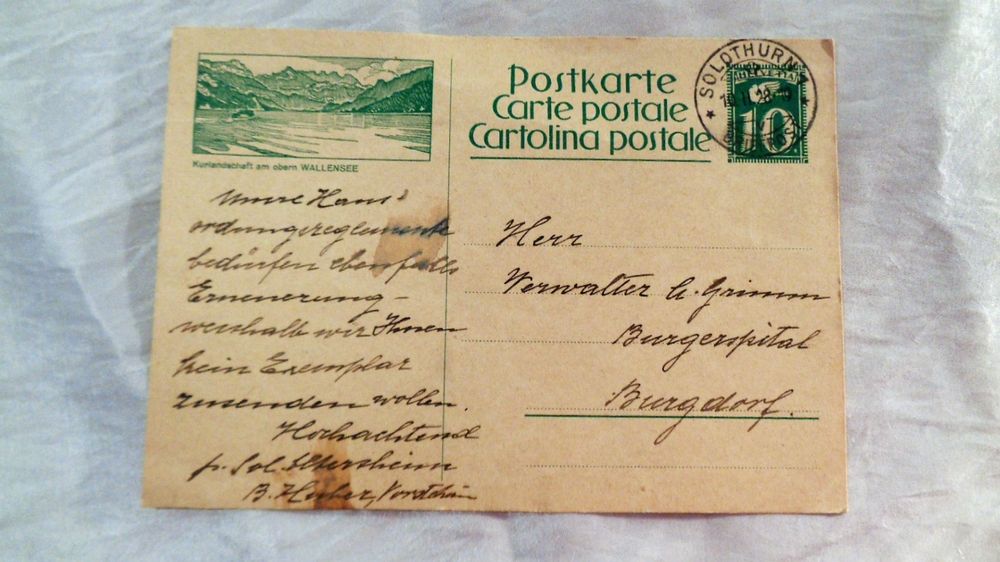 Kurlandschaft am obern WALLENSEE
Unsre Haus-
ordungsreglemente
bedürfen ebenfalls
Erneuerung –
weshalb wir Ihnen
kein Exemplar
zusenden wollen.
Hochachtend
p. Sol. Altersheim
B. Huber,
Postkarte
Carte postale
Cartolina postale
HELVETIA
10
SOLOTHURN
Herr
Verwalter A. Grimm
Burgerspital
Burgdorf.